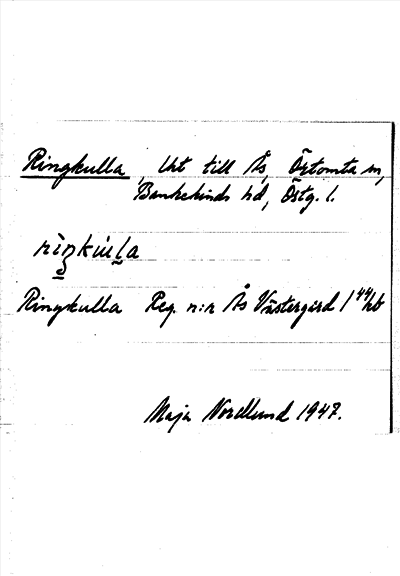 Ringkulla, Lht till Ås, Östomta sn,
Bankekinds hd, Östg. l.
rìŋkúl̲a
Ringkulla Reg. n:r Ås Västergård 1⁴⁴ hb
Maja Nordlund 1947.